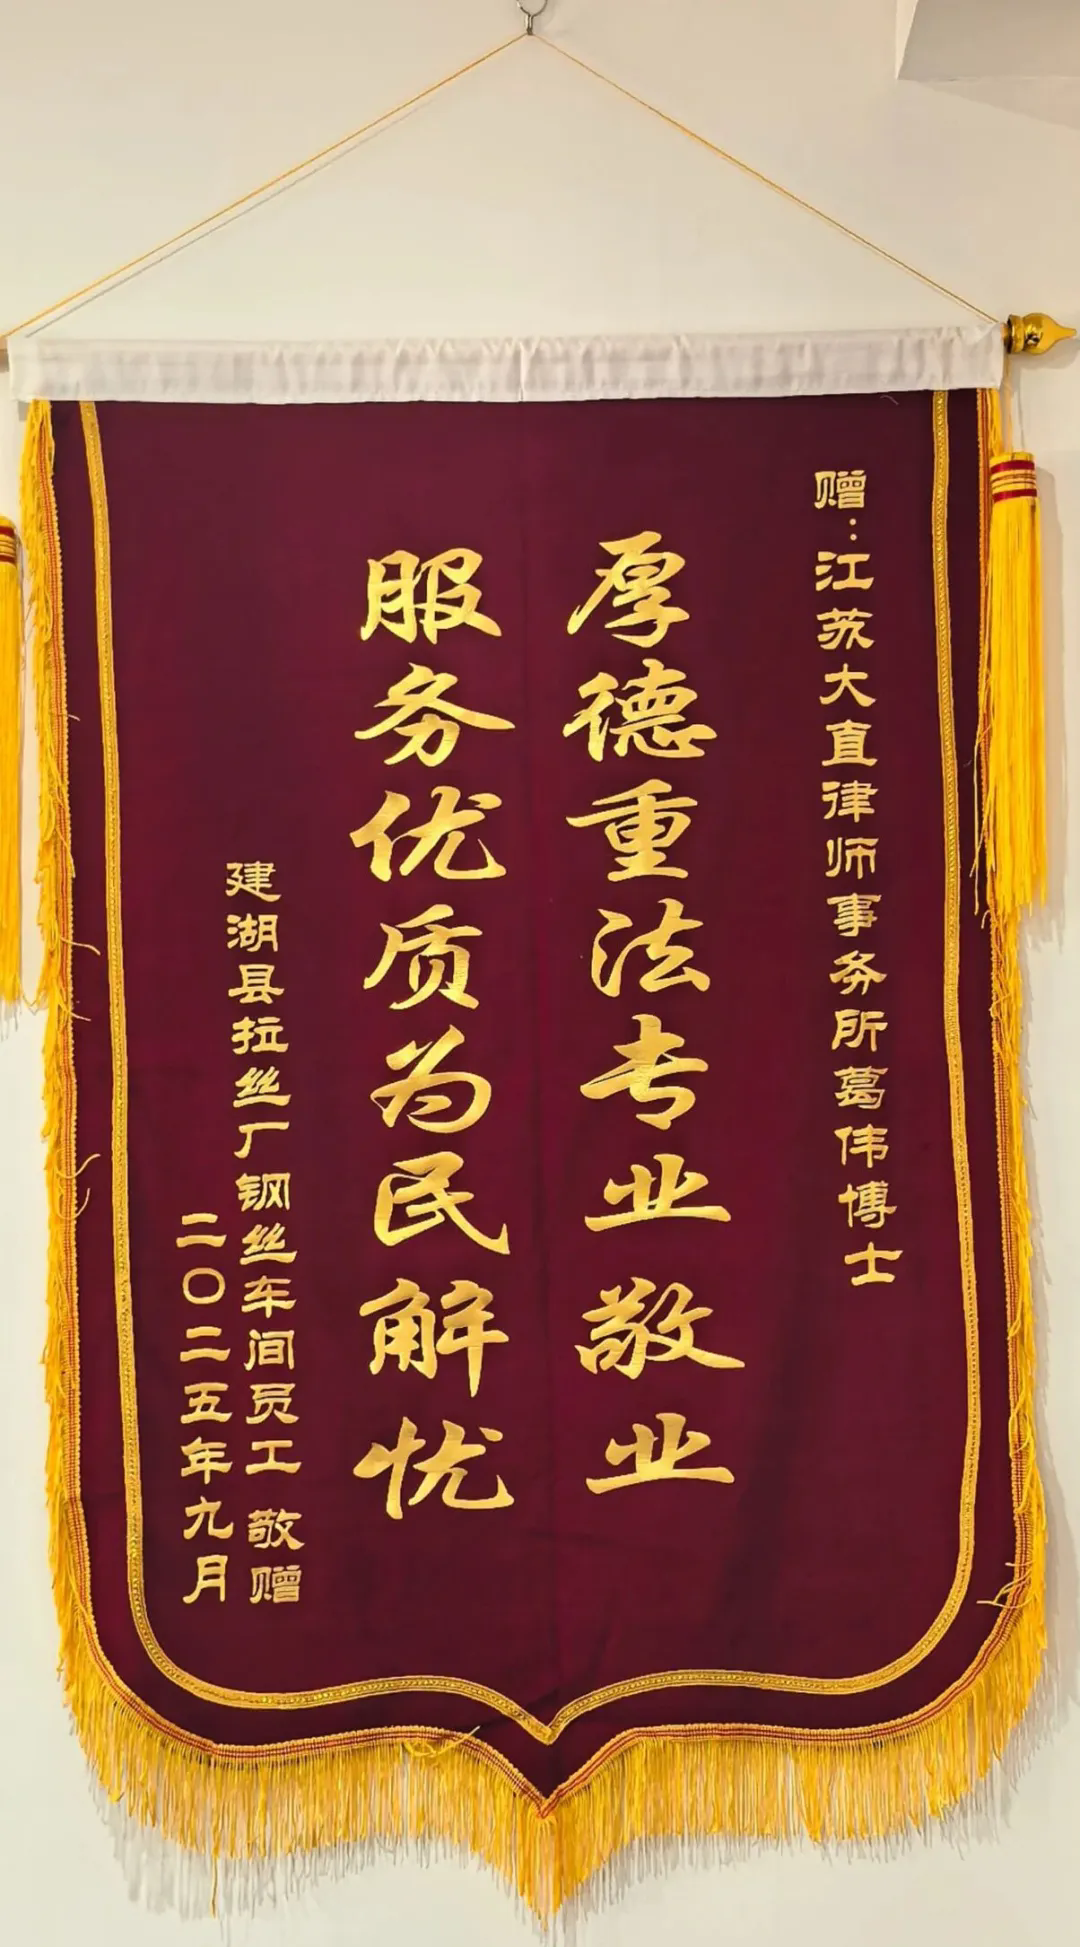 赠：江苏大直律师事务所葛伟博士
厚德重法专业敬业
服务优质为民解忧
建湖县拉丝厂钢丝车间员工 敬赠
二〇二五年九月